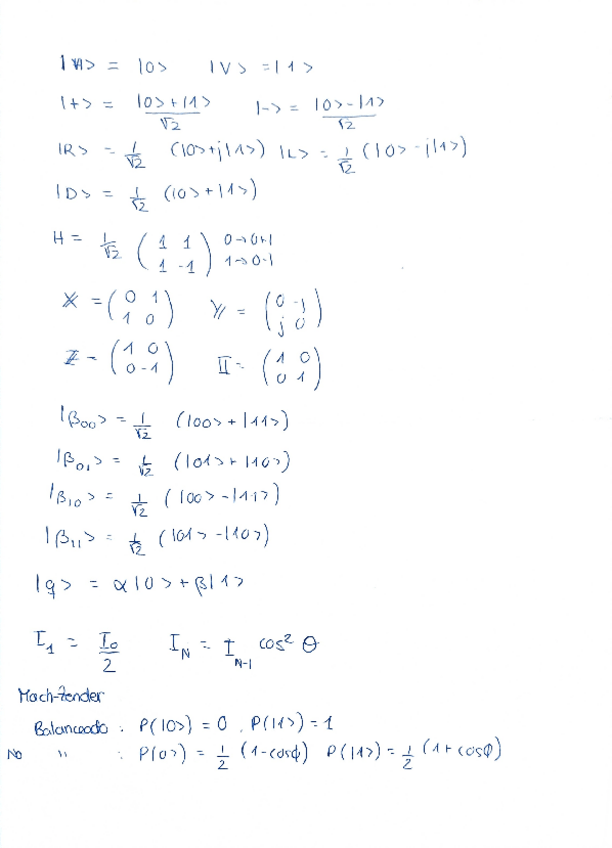 |H> = |0> |V> = |1>
|+> = |0>+|1> / √2 |-> = |0>-|1> / √2
|R> = 1/√2 (|0>+j|1>) |L> = 1/√2 (|0>-j|1>)
|D> = 1/√2 (|0>+|1>)
H = 1/√2 (1 1 0→0+1
1 -1) 1→0-1
X = (0 1 Y = (0 -j
1 0) j 0)
Z = (1 0 II = (1 0
0 -1) 0 1)
|β00> = 1/√2 (|00>+|11>)
|β01> = 1/√2 (|01>+|10>)
|β10> = 1/√2 (|00>-|11>)
|β11> = 1/√2 (|01>-|10>)
|q> = α|0>+β|1>
I1 = I0/2 IN = IN-1 cos² θ
Mach-Zender
Balanceado: P(|0>) = 0, P(|1>) = 1
No " : P(0>) = 1/2 (1-cosϕ) P(|1>) = 1/2 (1+cosϕ)